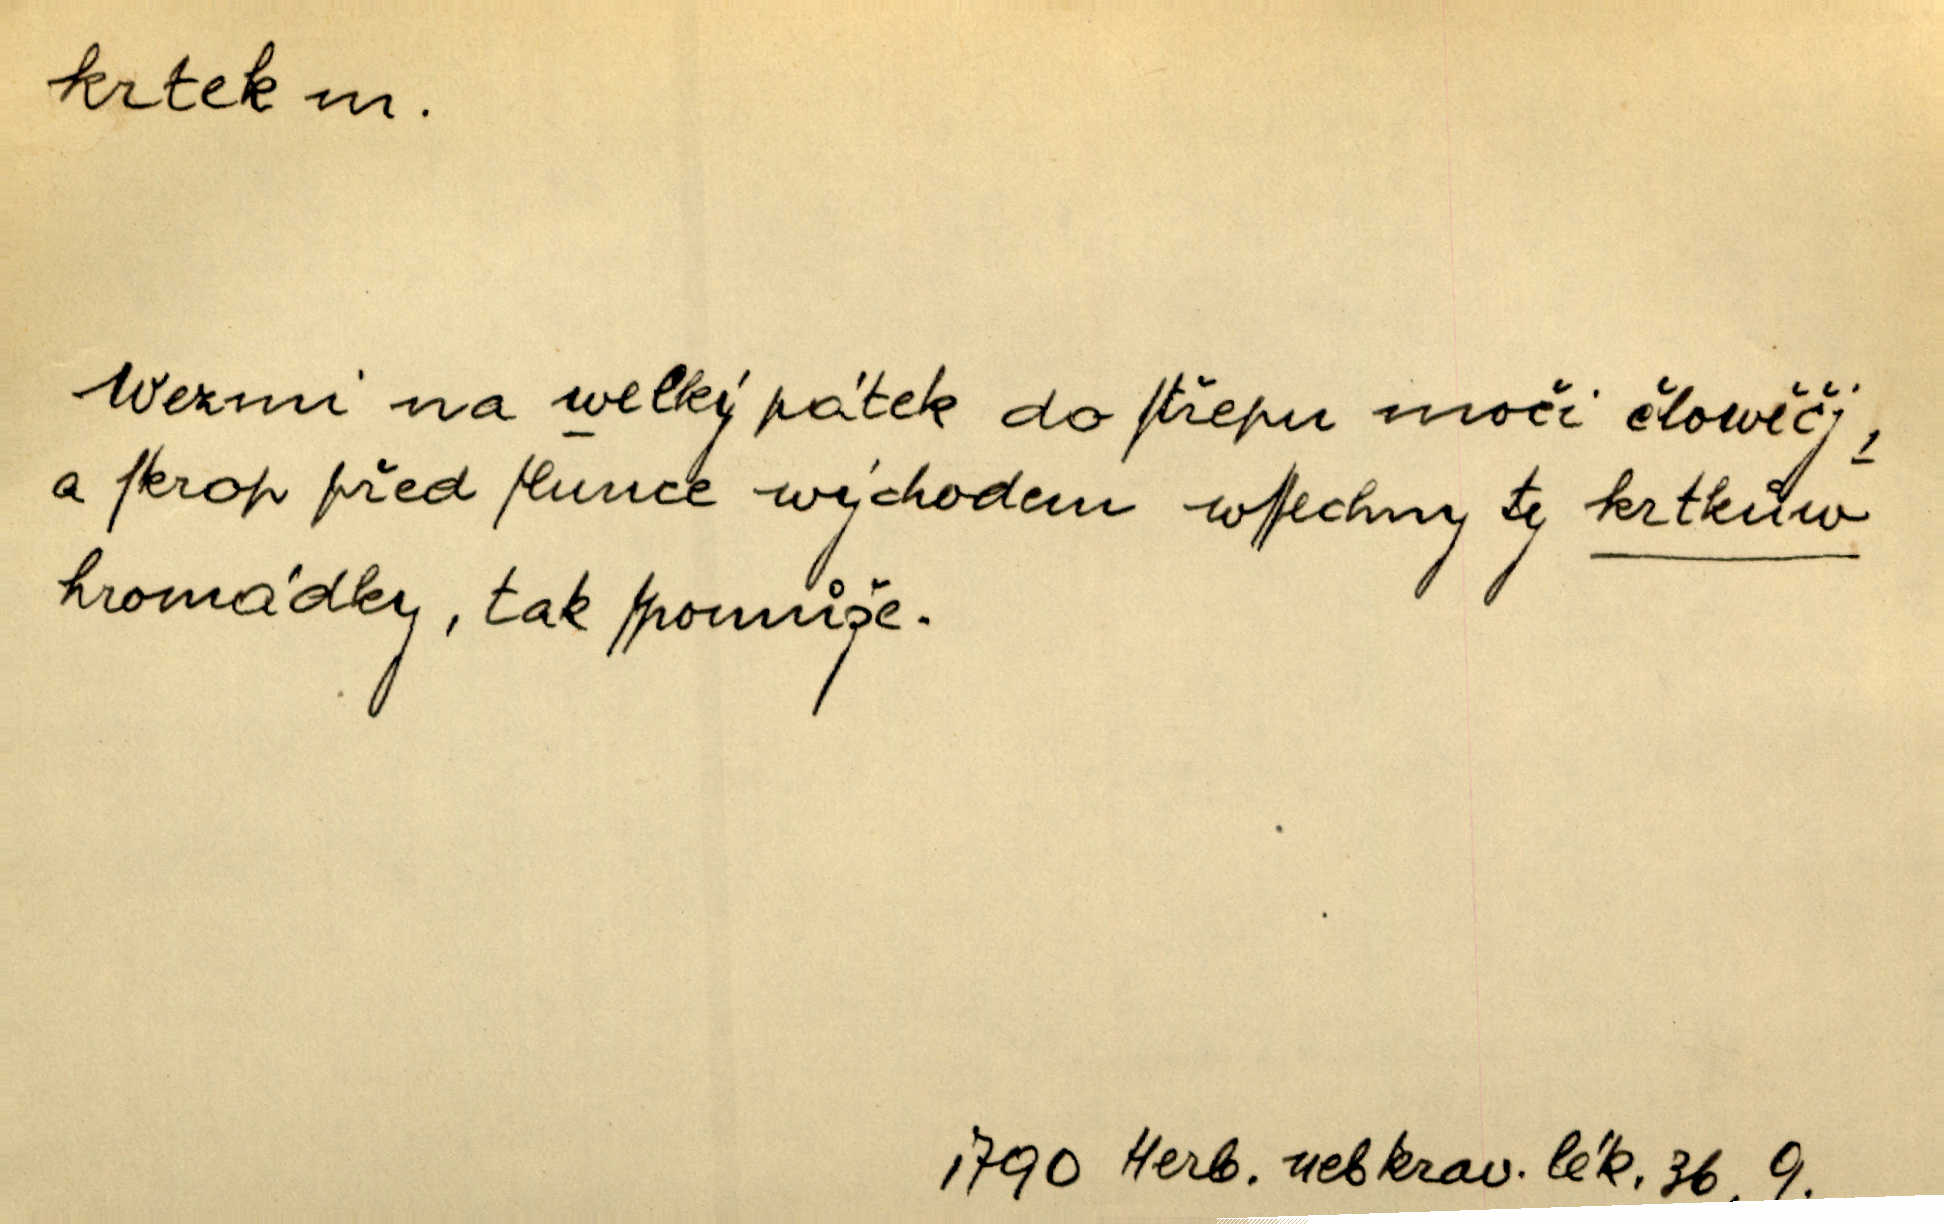 krtek m.
Wezmi na welký pátek do ſtřepu moči člowěčj,
a ſkrop před ſlunce wýchodem wſſechny ty krtkůw
hromádky, tak ſpomůže.
1790 Herb. neb krav. lék. 36, 9.